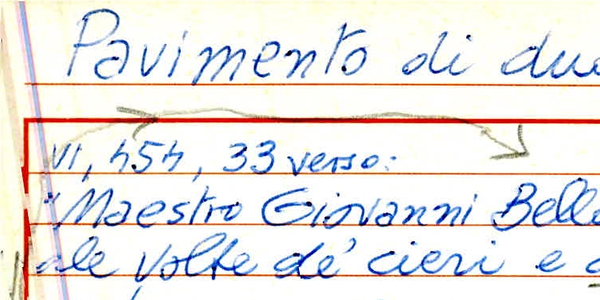 Pavimento di due
VI, 454, 33 verso:
"Maestro Giovanni Belle
ale volte de' cieri e